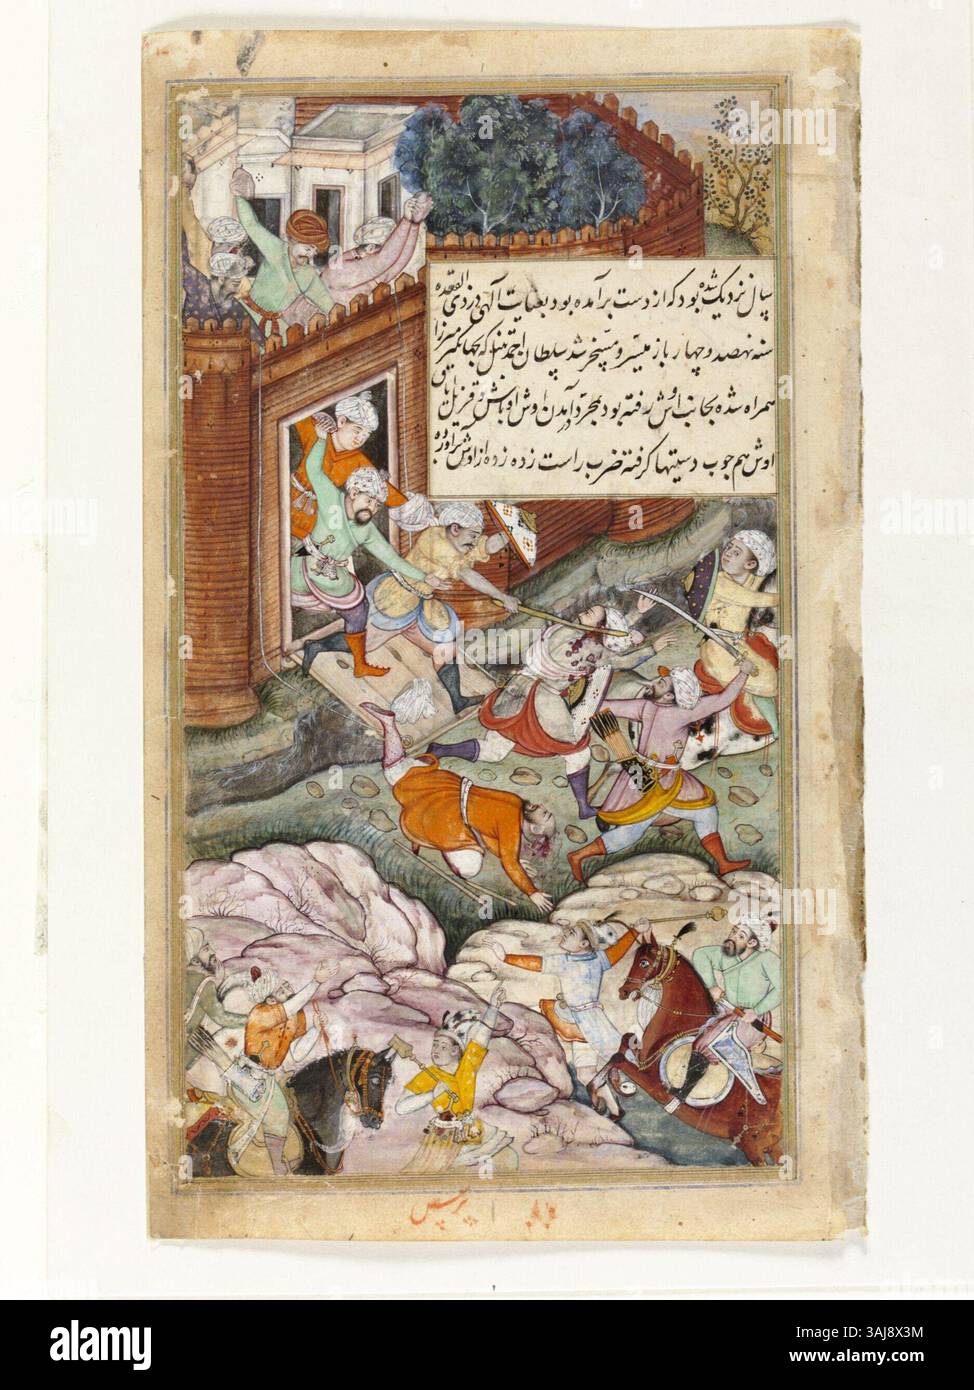 سال نزدیک شده بود که از دست برآمده بود بعنایت الهی در ذی القعده
سنه نهصد و چهار باز میسر و مسخر شد سلطان احمد تنبل که بجهانگیر میرزا
همراه شده بجانب اوش رفته بود بمجرد در آمدن اوش اوباش و قزیل ایاق
اوش هم چوب دستیها گرفته ضرب راست زده زده از اوش برآورده
alamy
alamy
alamy
Image ID: 3AJ8X3M
www.alamy.com